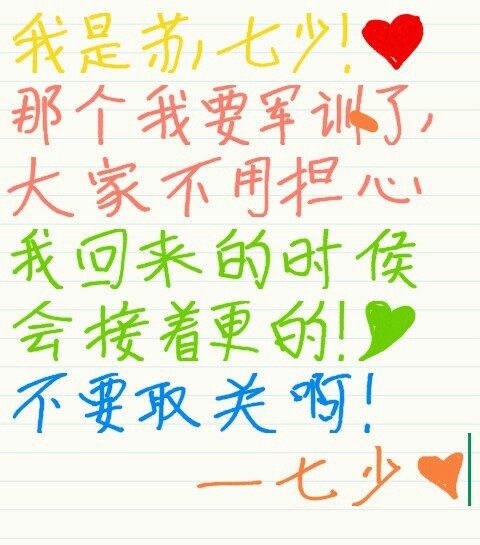 我是苏七少!
那个我要军训了,
大家不用担心
我回来的时候
会接着更的!
不要取关啊!
—七少